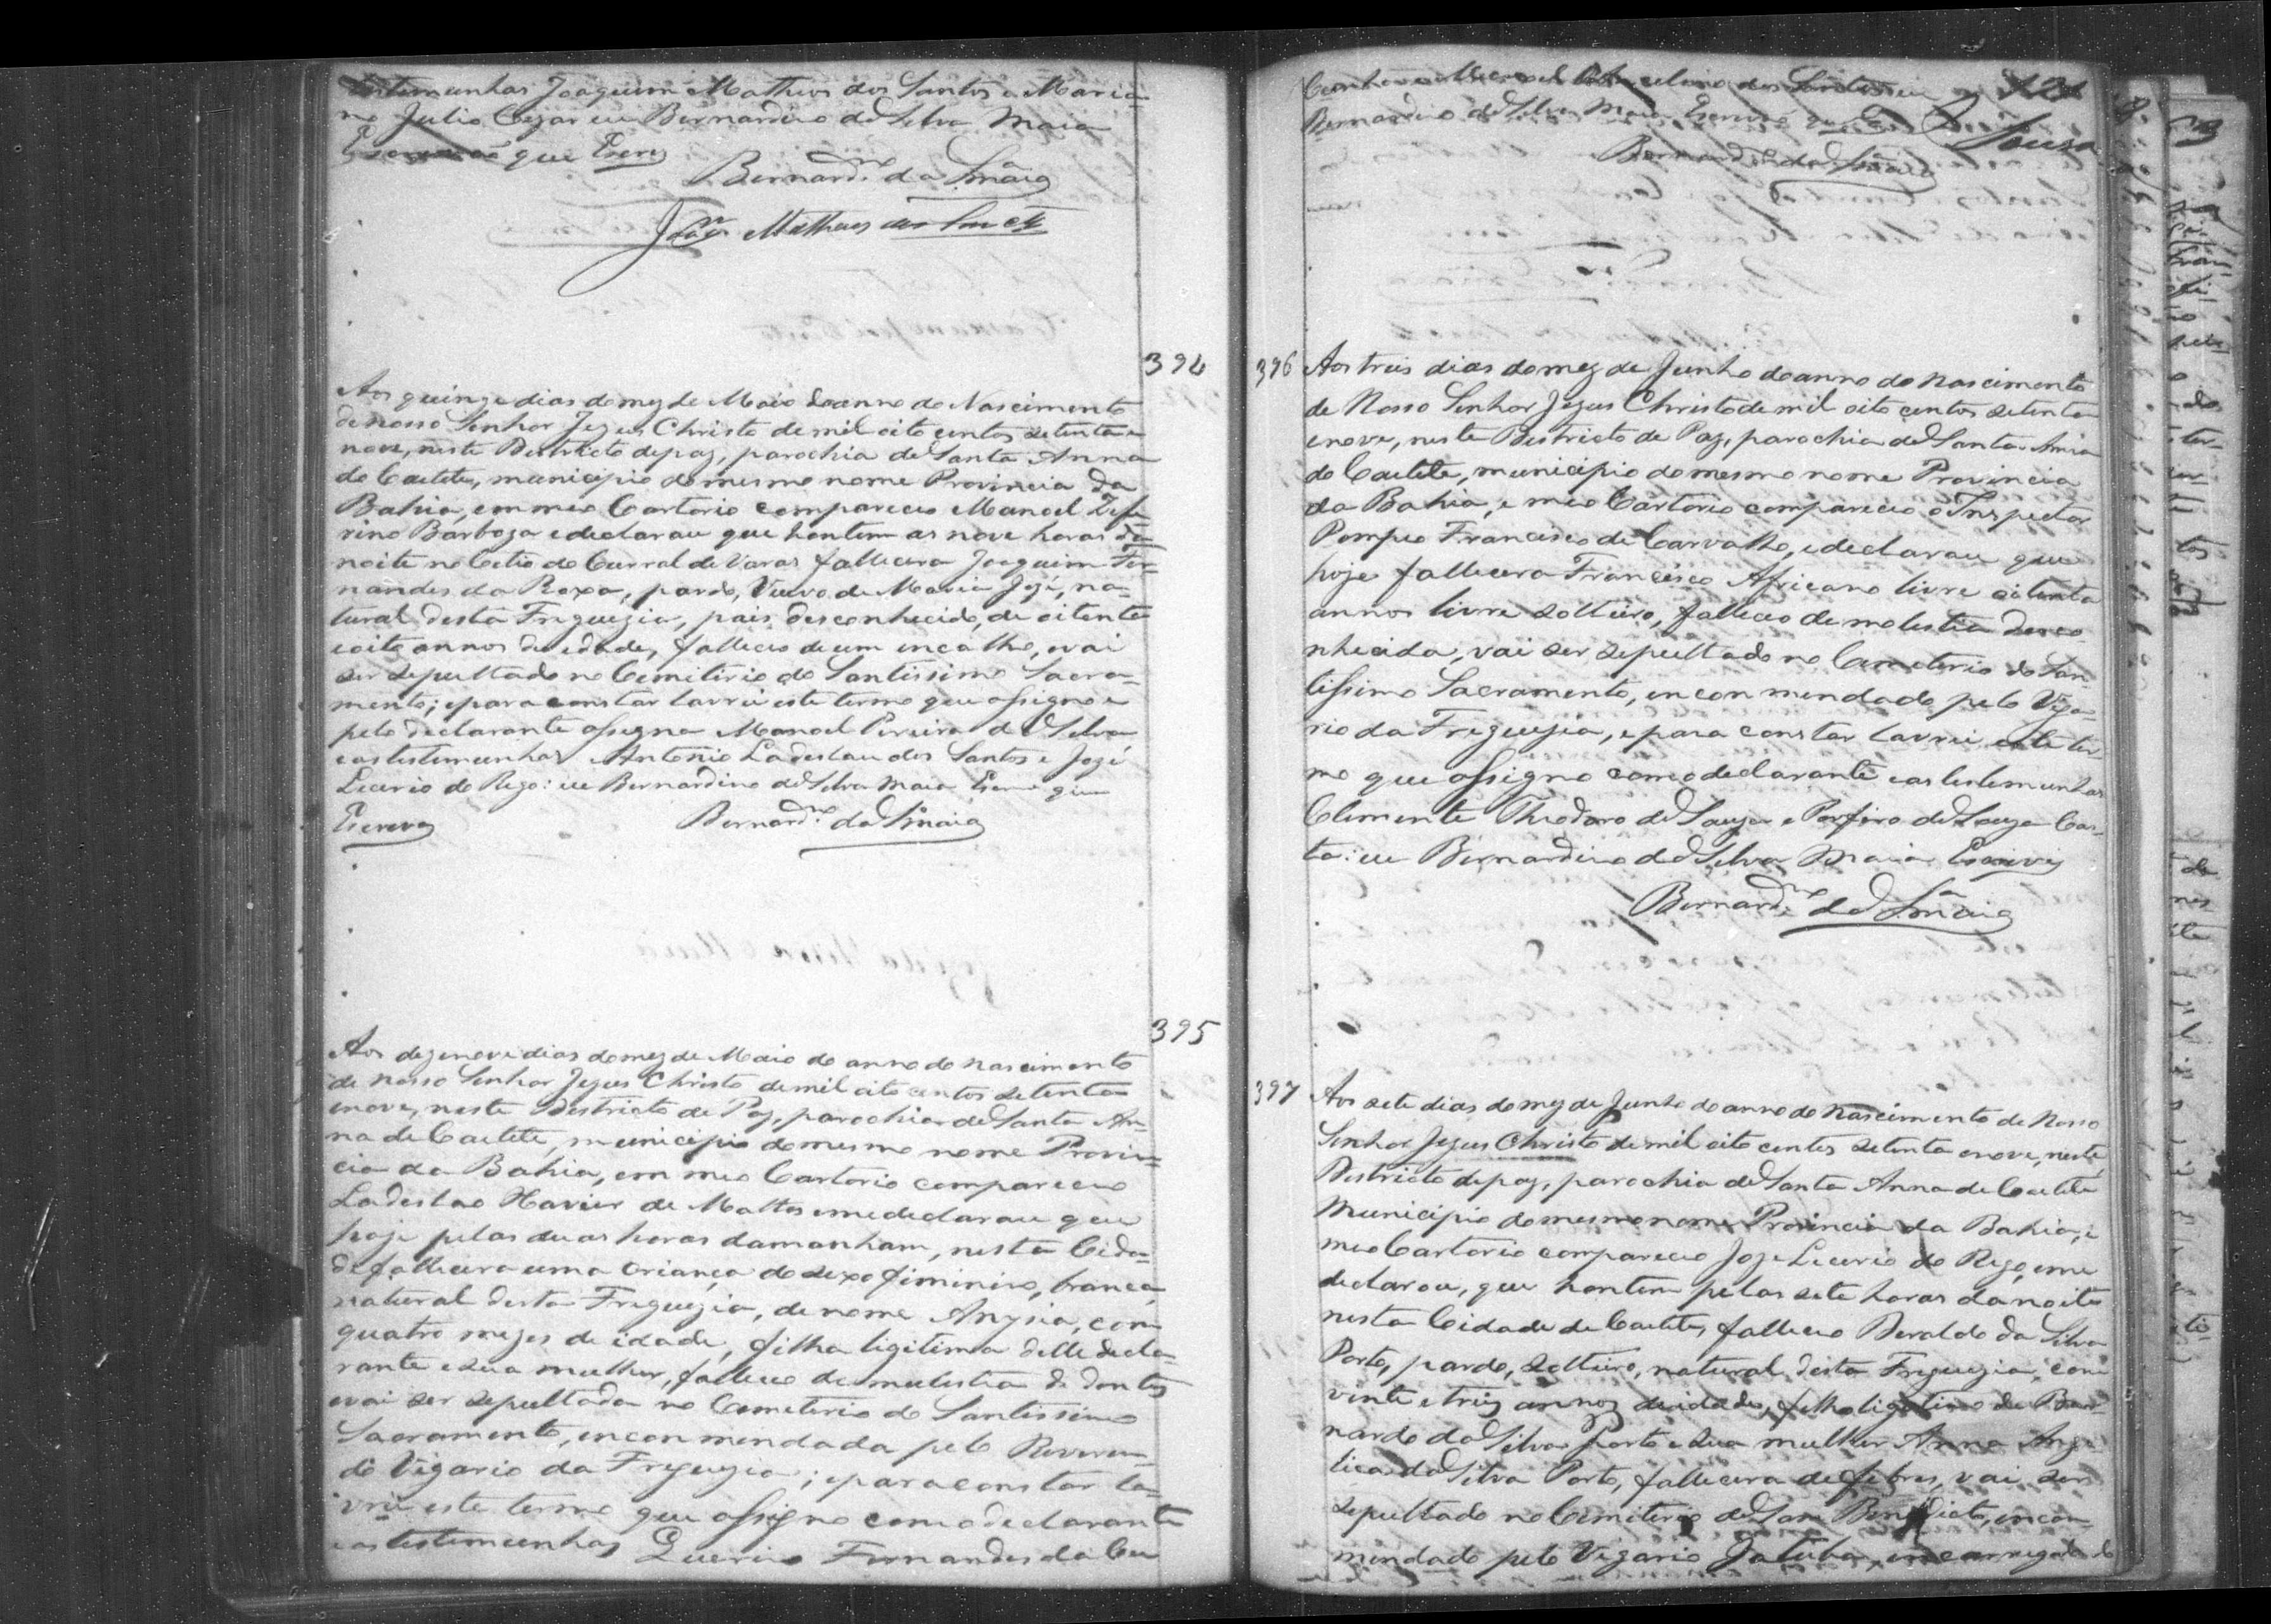 testemunhas Joaquim Matheos dos Santos e Maria-
no Julio Cezar eu Bernardino da Silva Maia
Escrivaõ que Escrevi
Bernard.no da S.a Maia
Joaq.m Matheus dos
394
Aos quinze dias do mez de Maio do anno do Nascimento
de nosso Senhor Jezus Christo de mil oito centos setenta e
nove, neste Destricto de paz, parochia de Santa Anna
do Caetete, municipio do mesmo nome Provincia da
Bahia, em meo Cartorio compareceo Manoel Zefe
rino Barboza e declarou que hontem as nove horas da
noite no Citio do Curral de Varas fallecera Joaquim Fer-
nandes da Roxa, pardo, Viuvo de Maria Jozé, na-
tural desta Freguezia, pais desconhecido, de oitenta
e oito annos de edade, falleceo de um encalhe, e vai
ser sepultado no Cemiterio do Santissimo Sacra-
mento; e para constar lavrei este termo que assigno e
pelo declarante assigna Manoel Pereira da Silva
e as testemunhas Antonio Ladeslau dos Santos e Jozé
Lucrio do Rego: eu Bernardino da Silva Maia Escrivaõ que
Escrevi
Bernard.no da S.a Maia
395
Aos dezenove dias do mez de Maio do anno do nascimento
de nosso Senhor Jezus Christo de mil oito centos setenta
e nove, neste Destricto de Paz, parochia de Santa An-
na de Caetete, municipio do mesmo nome Provin-
cia da Bahia, em meo Cartorio compareceo
Ladeslao Xavier de Mattos e me declarou que
hoje pelas duas horas da manham, nesta Cida-
de fallecera uma criança do sexo fiminino, branca,
natural desta Freguezia, de nome Anyzia, com
quatro mezes de idade, filha ligitima delle decla-
rante e sua mulher, falleceo de mulestia de dentes
e vai ser sepultada no Cemeterio do Santissimo
Sacramento, enconmendada pelo Reveren-
do Vigario da Freguezia; e para constar la-
vrei este termo que assigno com o declarante
e as testemunhas Fernandes da Cu
Cunha e Manoel dos Santos eu
Bernardino da Silva Maia Escrivaõ que
Bernard.no da S.a Maia
121
Souza
396
Aos treis dias do mez de Junho do anno do nascimento
de Nosso Senhor Jezus Christo de mil oito centos setenta
e nove, neste Destricto de Paz, parochia de Santa Anna
do Caetete, municipio do mesmo nome Provincia
da Bahia, e meo Cartorio compareceo o Inspector
Pompeo Francisco de Carvalho, e declarou que
hoje fallecera Francisco Africano livre oitenta
annos livre solteiro, falleceo de molestia desco-
nhecida, vai ser sepultado no Cemeterio do San-
tissimo Sacramento, enconmendado pelo Viga-
rio da Freguezia, e para constar lavrei este ter-
mo que assigno com o declarante e as testemunhas
Clemente Theodoro de Souza e Porfiro de Souza Cos-
ta: eu Bernardino da Silva Maia Escrevi
Bernard.no da S.a Maia
397
Aos sete dias do mez de Junho do anno do nascimento de Nosso
Senhor Jezus Christo de mil oito centos setenta e nove, neste
Destricto de paz, parochia de Santa Anna de Caetete
Municipio do mesmo nome Provincia da Bahia, e
meo Cartorio compareceo Joze Lucrio do Rego, e me
declarou, que hontem pelas sete horas da noite
nesta Cidade de Caetete, falleceo Beraldo da Silva
Porto, pardo, solteiro, natural desta Freguezia, com
vinte e treis annos de idade, filho ligitimo de Ber-
nardo da Silva Porto e sua mulher Anna Ange
lica da Silva Porto, fallecera de febres, vai ser
sepultado no Cemiterio de Sam Benedicto, encon-
mendado pelo Vigario